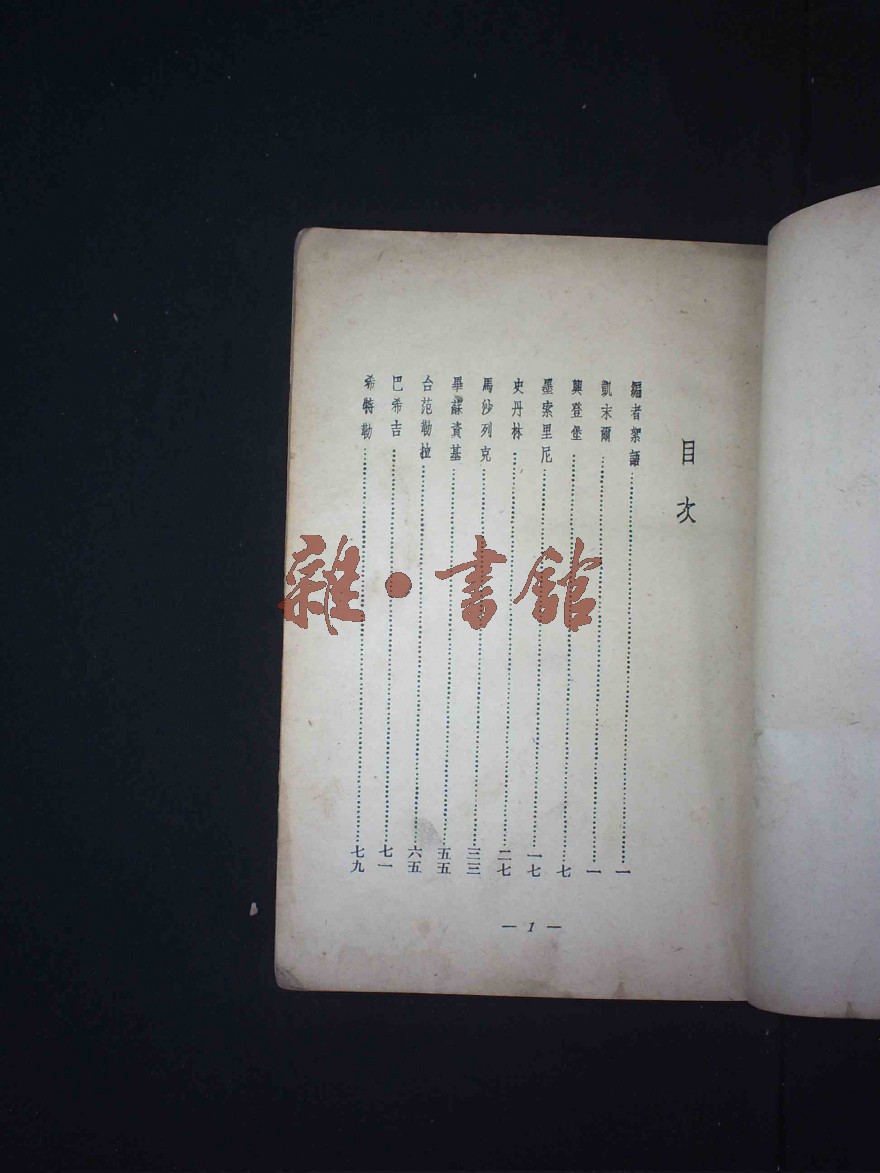 目次
編者絮語……一
凱末爾……一
興登堡……七
墨索里尼……一七
史丹林……二七
馬沙列克……三三
畢蘇資基……五五
台范勒拉……六五
巴希吉……七一
希特勒……七九
— 1 —
雜·書館